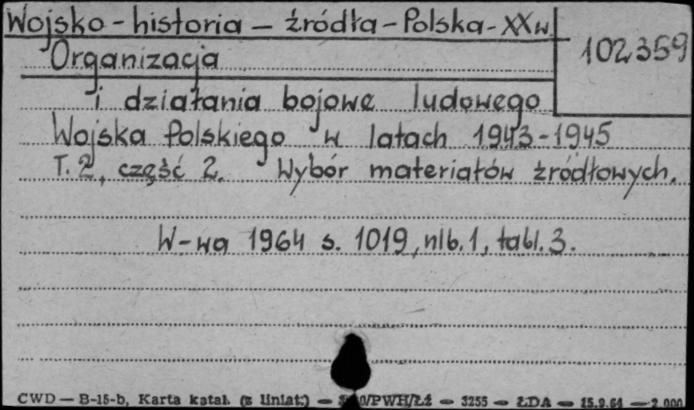 Wojsko - historia - źródła - Polska - XX w
102359
Organizacja
i działania bojowe ludowego
Wojska Polskiego w latach 1943-1945
T. 2, część 2. Wybór materiałów źródłowych.
W-wa 1964 s. 1019, nlb. 1, tabl. 3.
CWD — B-15-b, Karta katal. (z liniat.) — /PWH/Łź — 3255 — ŁDA — 15.9.64 — 2.000